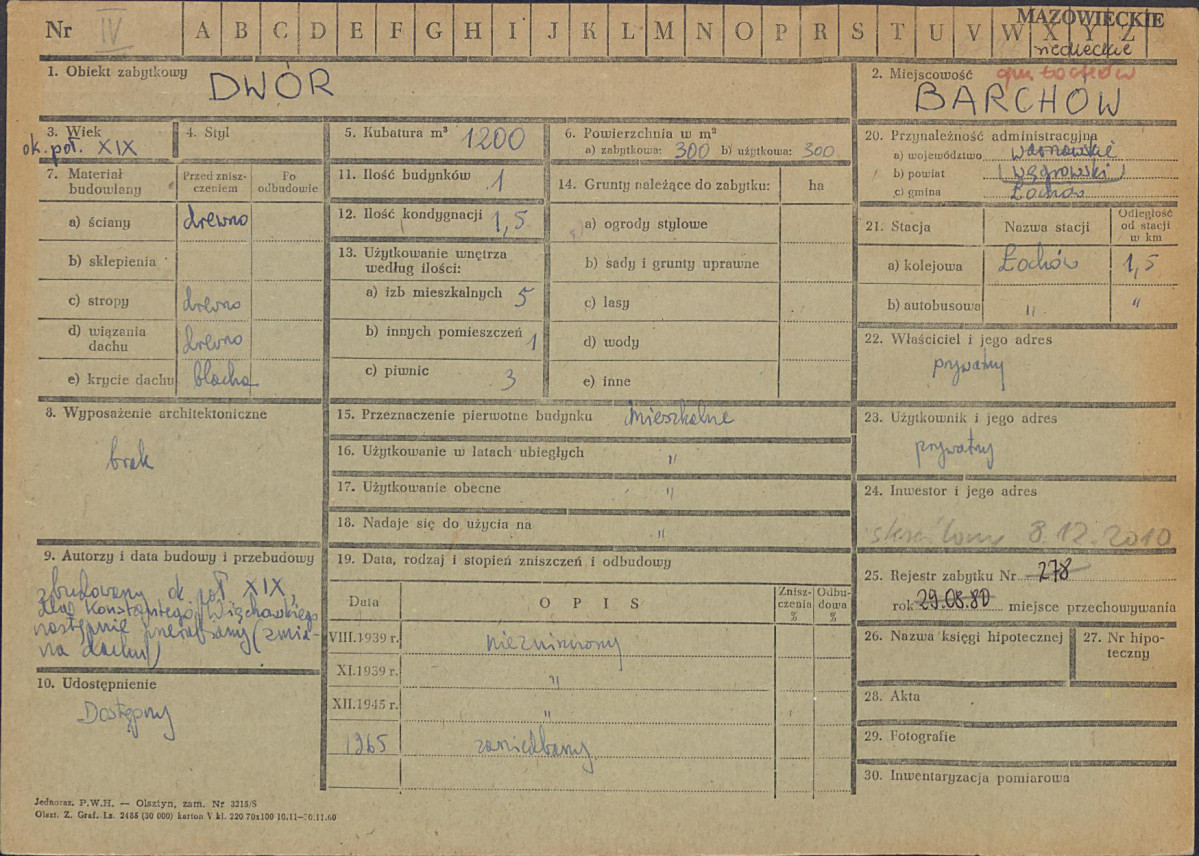 Nr IV A B C D E F G H I J K L M N O P R S T U V W X Y Z MAZOWIECKIE
siedleckie
1. Obiekt zabytkowy DWÓR
2. Miejscowość gm. Łochów
BARCHÓW
3. Wiek ok. poł. XIX
4. Styl
5. Kubatura m³ 1200
6. Powierzchnia w m²
a) zabytkowa: 300 b) użytkowa: 300
7. Materiał budowlany
Przed zniszczeniem
Po odbudowie
a) ściany drewno
b) sklepienia
c) stropy drewno
d) wiązania dachu drewno
e) krycie dachu blacha
8. Wyposażenie architektoniczne
brak
9. Autorzy i data budowy i przebudowy
zbudowany ok. poł XIX,
dla Konstantego
następnie (zmia-
na dachu)
10. Udostępnienie
Dostępny
11. Ilość budynków 1
12. Ilość kondygnacji 1,5
13. Użytkowanie wnętrza
według ilości:
a) izb mieszkalnych 5
b) innych pomieszczeń 1
c) piwnic 3
14. Grunty należące do zabytku: ha
a) ogrody stylowe
b) sady i grunty uprawne
c) lasy
d) wody
e) inne
15. Przeznaczenie pierwotne budynku mieszkalne
16. Użytkowanie w latach ubiegłych "
17. Użytkowanie obecne "
18. Nadaje się do użycia na "
19. Data, rodzaj i stopień zniszczeń i odbudowy
Data OPIS Zniszczenia % Odbudowa %
VIII.1939 r. niezniszczony
XI.1939 r. "
XII.1945 r. "
1965 zaniedbany
20. Przynależność administracyjna
a) województwo warszawskie
b) powiat (węgrowski)
c) gmina Łochów
21. Stacja Nazwa stacji Odległość od stacji w km
a) kolejowa Łochów 1,5
b) autobusowa " "
22. Właściciel i jego adres
prywatny
23. Użytkownik i jego adres
prywatny
24. Inwestor i jego adres
skreślony 8.12.2010
25. Rejestr zabytku Nr 278
rok 29.08.80 miejsce przechowywania
26. Nazwa księgi hipotecznej
27. Nr hipoteczny
28. Akta
29. Fotografie
30. Inwentaryzacja pomiarowa
Jednoraz. P.W.H. — Olsztyn, zam. Nr 3215/S
Olszt. Z. Graf. Lz. 2485 (30 000) karton V kl. 220 70x100 10.11—30.11.60